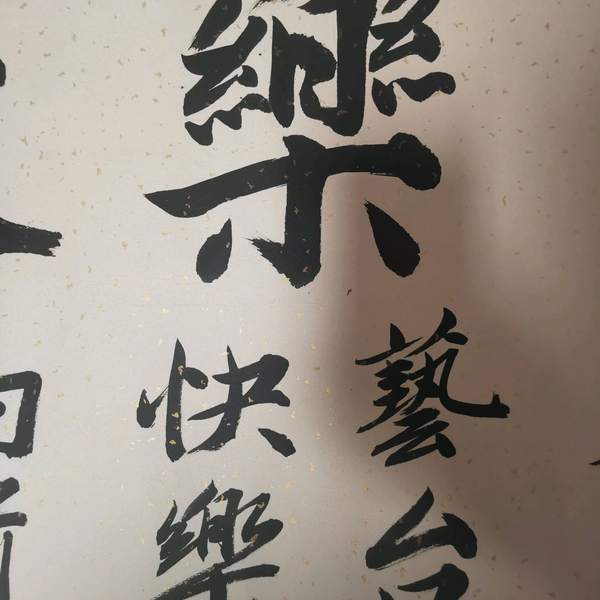 樂
藝台
快樂